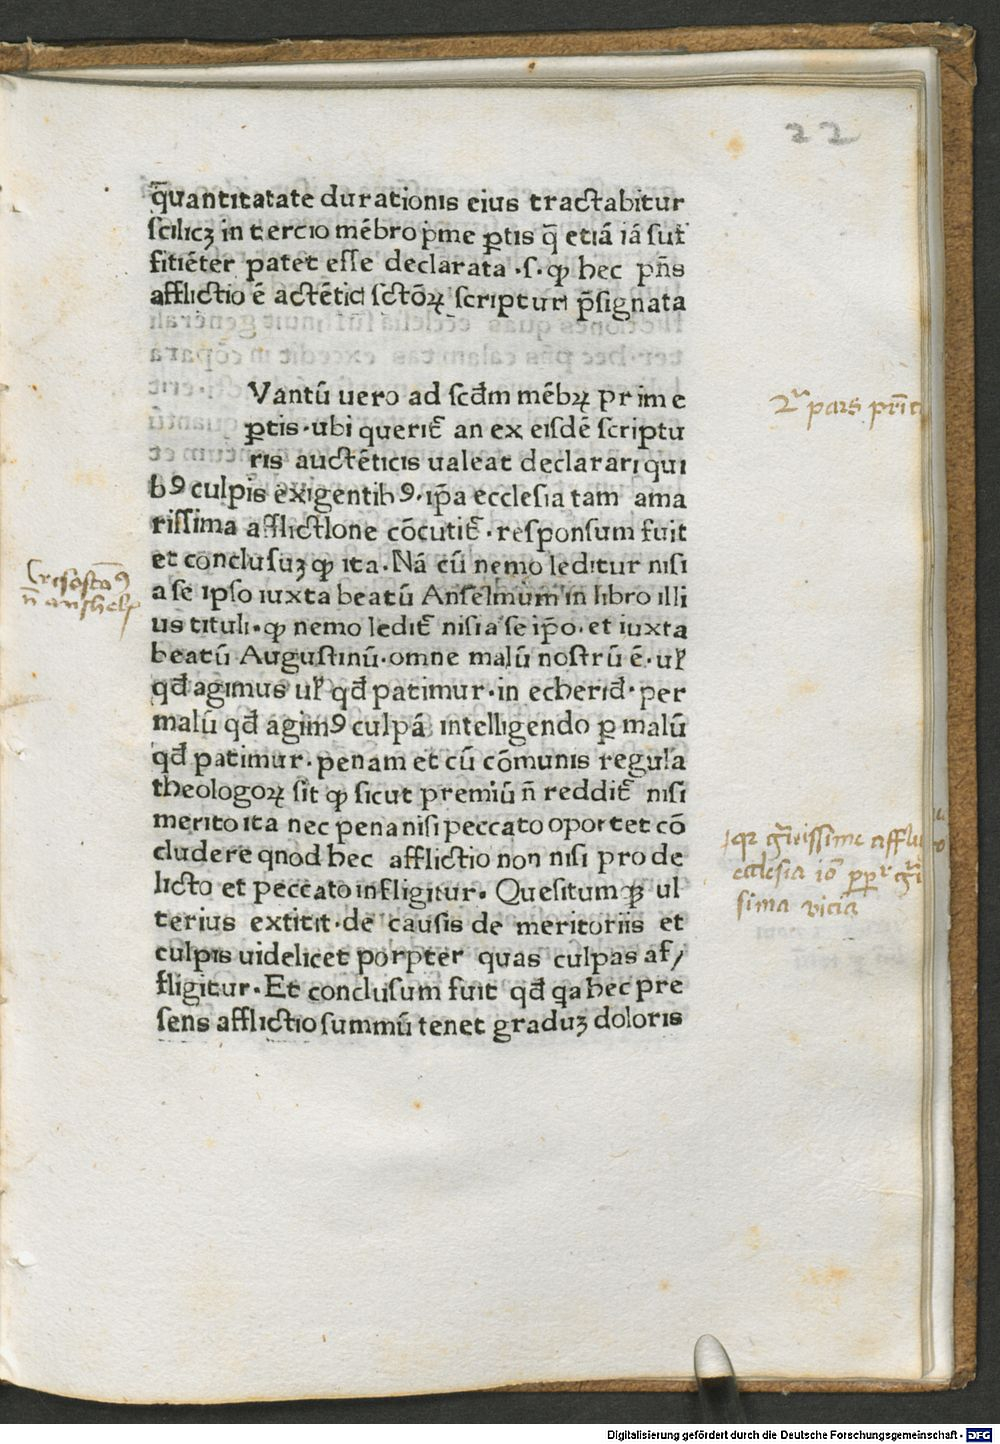 22
q̄uantitatate durationis eius tractabitur
scilicꝫ in tercio mēbro p̄me ꝑtis q̄ etiā iā suf
fitiēter patet esse declarata .s. ꝙ hec pn̄s
afflictio ē actētici sctōꝝ scripturi p̄signata
Vantū uero ad scd̄m mēbꝝ prime
ꝑtis. ubi querit̄ an ex eisdē scriptu
ris auctēticis ualeat declarari qui
bꝰ culpis exigentibꝰ. ip̄a ecclesia tam ama
rissima afflictIone cōcutit̄. responsum fuit
et conclusuꝫ ꝙ ita. Nā cū nemo leditur nisi
a se ipso iuxta beatū Anselmum in libro illi
us tituli. ꝙ nemo ledit̄ nisi a se ip̄o. et iuxta
beatū Augustinū. omne malū nostrū ē. ul̄
qd̄ agimus ul̄ qd̄ patimur. in echerid̄. per
malū qd̄ agimꝰ culpā intelligendo ꝑ malū
qd̄ patimur. penam et cū cōmunis regula
theologoꝝ sit ꝙ sicut premiū n̄ reddit̄ nisi
merito ita nec pena nisi peccato oportet cō
cludere qnod hec afflictio non nisi pro de
licto et peccato infligitur. Quesitumqꝫ ul
terius extitit. de causis de meritoriis et
culpis uidelicet porpter quas culpas af/
fligitur. Et conclusum fuit qd̄ qa hec pre
sens afflictio summū tenet graduꝫ doloris
2ª pars
Crisostōꝰ
n̄ anshelꝰ
ecclesia
sima vicia
Digitalisierung gefördert durch die Deutsche Forschungsgemeinschaft - DFG